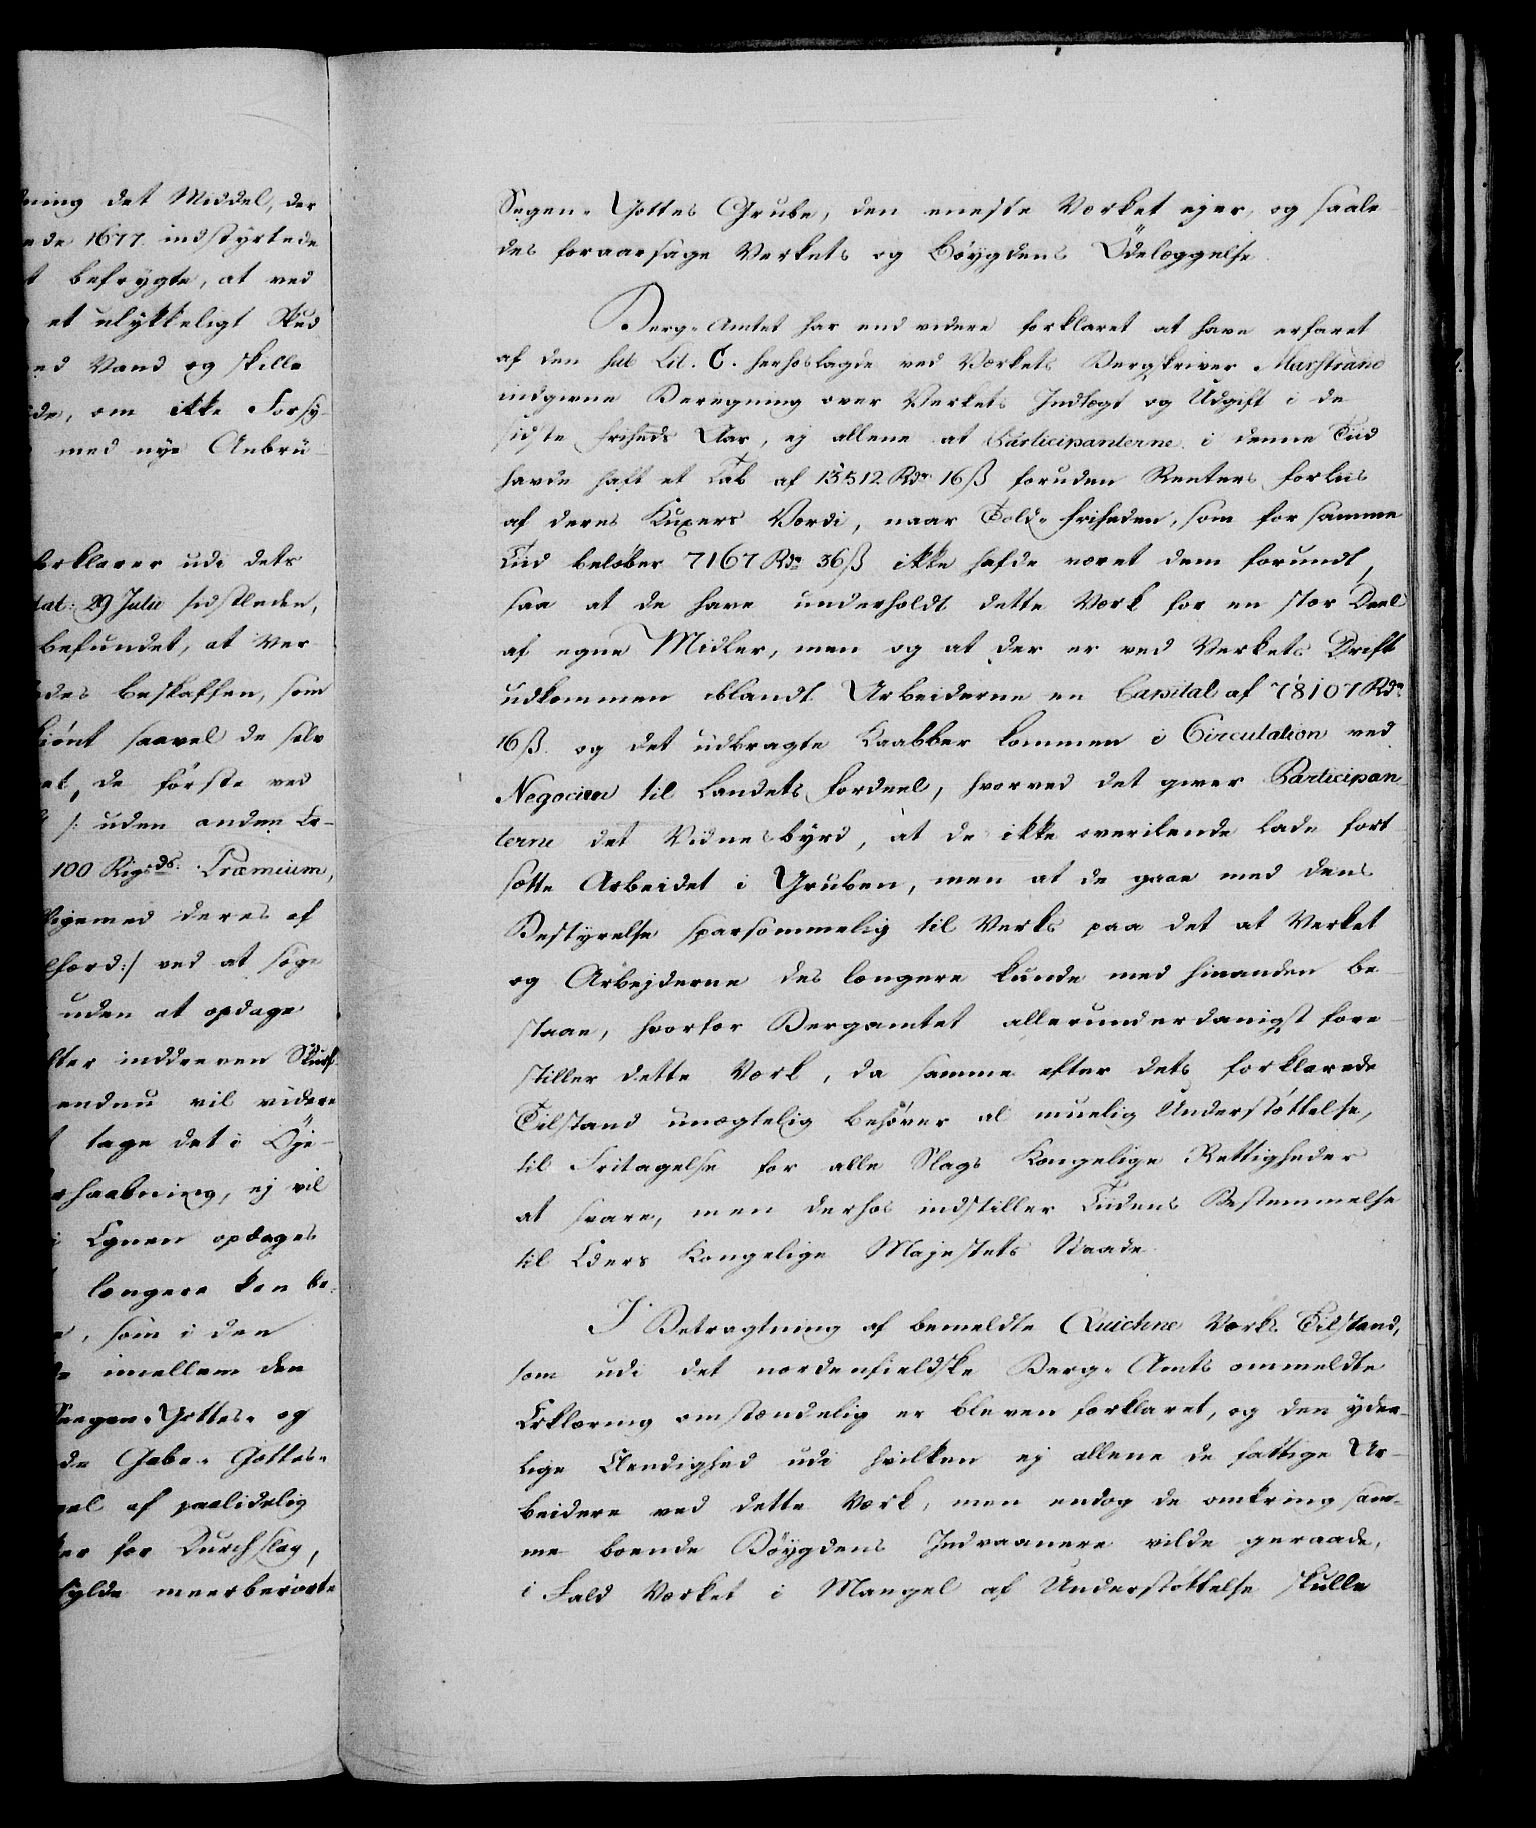 ning det Middel, der
de 1677 indstyrtede
befrygte, at ved
et ulykkeligt Skud
ed Vand og skille
de, om ikke Forsy-
med nye Anbrü-
orklarer udi dets
dat: 29 Julii sidstleden,
befundet, at Ver-
des beskaffen, som
kiönt saavel de selv
et, de förste ved
/: uden anden Er-
100 Rigsds. Præmium,
ligemed deres af
:/ ved at söge
uden at opdage
ter inddreven Skurf
endnu vil videre
tage det i Öje-
haabning, ej vil
i Egnen opdages
længere kan be-
, som i den
imellem den
Seegen-Gottes- og
de Gabe-Gottes-
af paalidelig
for Durchslag,
fylde meerberörte
Segen-Gottes Grube, den eneste Værket ejer, og saale-
des foraarsage Verkets og Böygdens Ödelæggelse.
Berg-Amtet har end videre forklaret at have erfaret
af den sub Lit. C. herhoslagde ved Værkets Bergskriver Marstrand
indgivne Beregning over Verkets Indtægt og Udgift i de
sidste Friheds Aar, ej allene at Participanterne i denne Tiid
havde haft et Tab af 13512 Rdr 16 ß foruden Renters Forliis
af deres Kuxers Værdi, naar Told-Friheden, som for samme
Tiid belöber 7167 Rdr 36 ß ikke hafde været dem forundt,
saa at de have underholdt dette Værk for en stor Deel
af egne Midler, men og at der er ved Verkets Drift
udkommen iblandt Arbeiderne en Capital af 78107 Rdr
16 ß. og det udbragte Kaabber kommen i Circulation ved
Negocien til Landets Fordeel, hvorved det giver Participan-
terne det Vidnesbyrd, at de ikke overilende lade fort-
sætte Arbeidet i Gruben, men at de gaae med dens
Bestyrelse sparsommelig til Verks paa det at Verket
og Arbejderne des længere kunde med hinanden be-
staae, hvorfor Bergamtet allerunderdanigst fore-
stiller dette Værk, da samme efter dets forklarede
Tilstand unægtelig behöver al muelig Understöttelse,
til Fritagelse for alle Slags Kongelige Rettigheder
at svare, men derhos indstiller Tiidens Bestemmelse
til Eders Kongelige Majestets Naade.
I Betragtning af bemeldte Quichne Værks Tilstand,
som udi det nordenfieldske Berg-Amts ommeldte
Erklæring omstændelig er bleven forklaret, og den yder-
lige Elendighed udi hvilken ej allene de fattige Ar-
beidere ved dette Værk, men endog de omkring sam-
me boende Böygdens Indvaanere vilde geraade,
i Fald Værket i Mangel af Understöttelse skulle